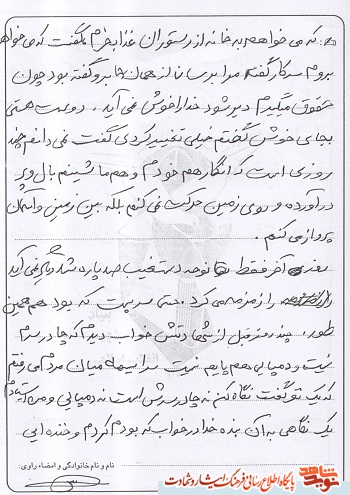 که می خواهم به خانه از رستوران غذا بخرم گفت که می خواهم
بروم سر کار گفتم مرا برسان از همان جا برو گفته بود چون
حقوق میگیرم دیر شود خدا را خوش نمی آید.
بجای خوش گفتم خیلی تغییر کردی گفت نمی دانم چند
روزی است که انگار هم خودم و هم ماشینم بال و پر
درآورده و روی زمین حرکت نمی کنم بلکه بین زمین و آسمان
پرواز می کنم.
آخر فقط نوحه دستغیب صد پاره شد نمی آید
را زمزمه می کرد. حتی سر پست که بود هم همین
طور. چند روز قبل از شهادتش خواب دیدم که چادر سرم
نیست و دمپایی هم پایم نیست میان مردم می رفتم
که یک نفر گفت نگاه کن نه چادر سرش است نه دمپایی و من
یک نگاهی به آن بنده خدا در خواب که بودم کردم و خنده ایی
نام و نام خانوادگی و امضاء راوی:
شاهد
نوید
پایگاه اطلاع رسانی فرهنگ ایثار و شهادت